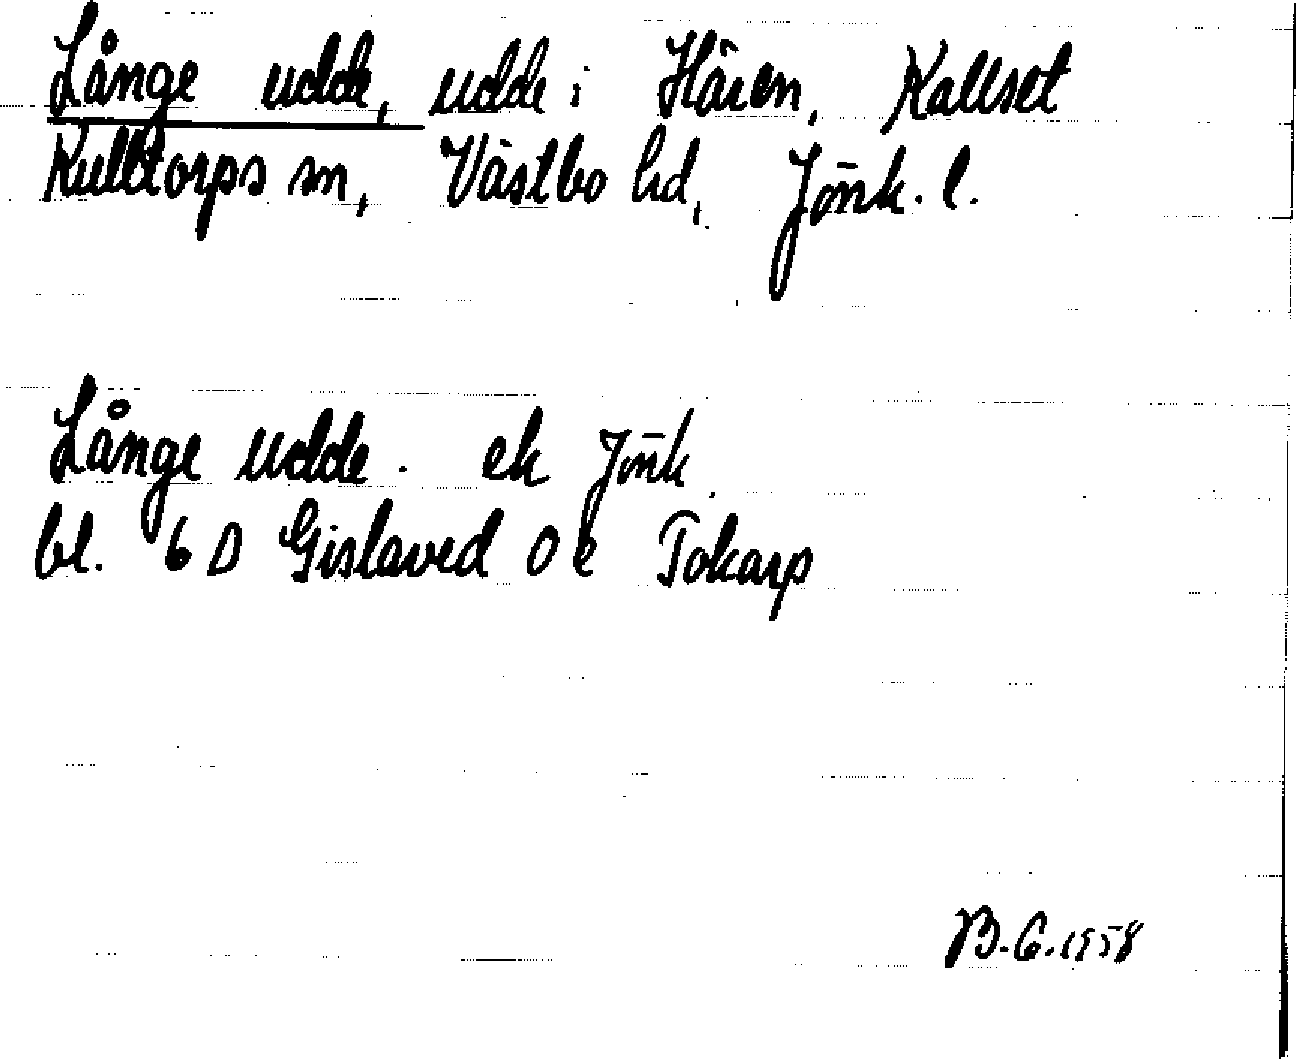 Långe udde, udde i Hären, Kallset
Kulltorps sn, Västbo hd, Jönk. l.
Långe udde. ek Jönk
bl. 6 D Gislaved 0 e Tokarp
B.G. 1958